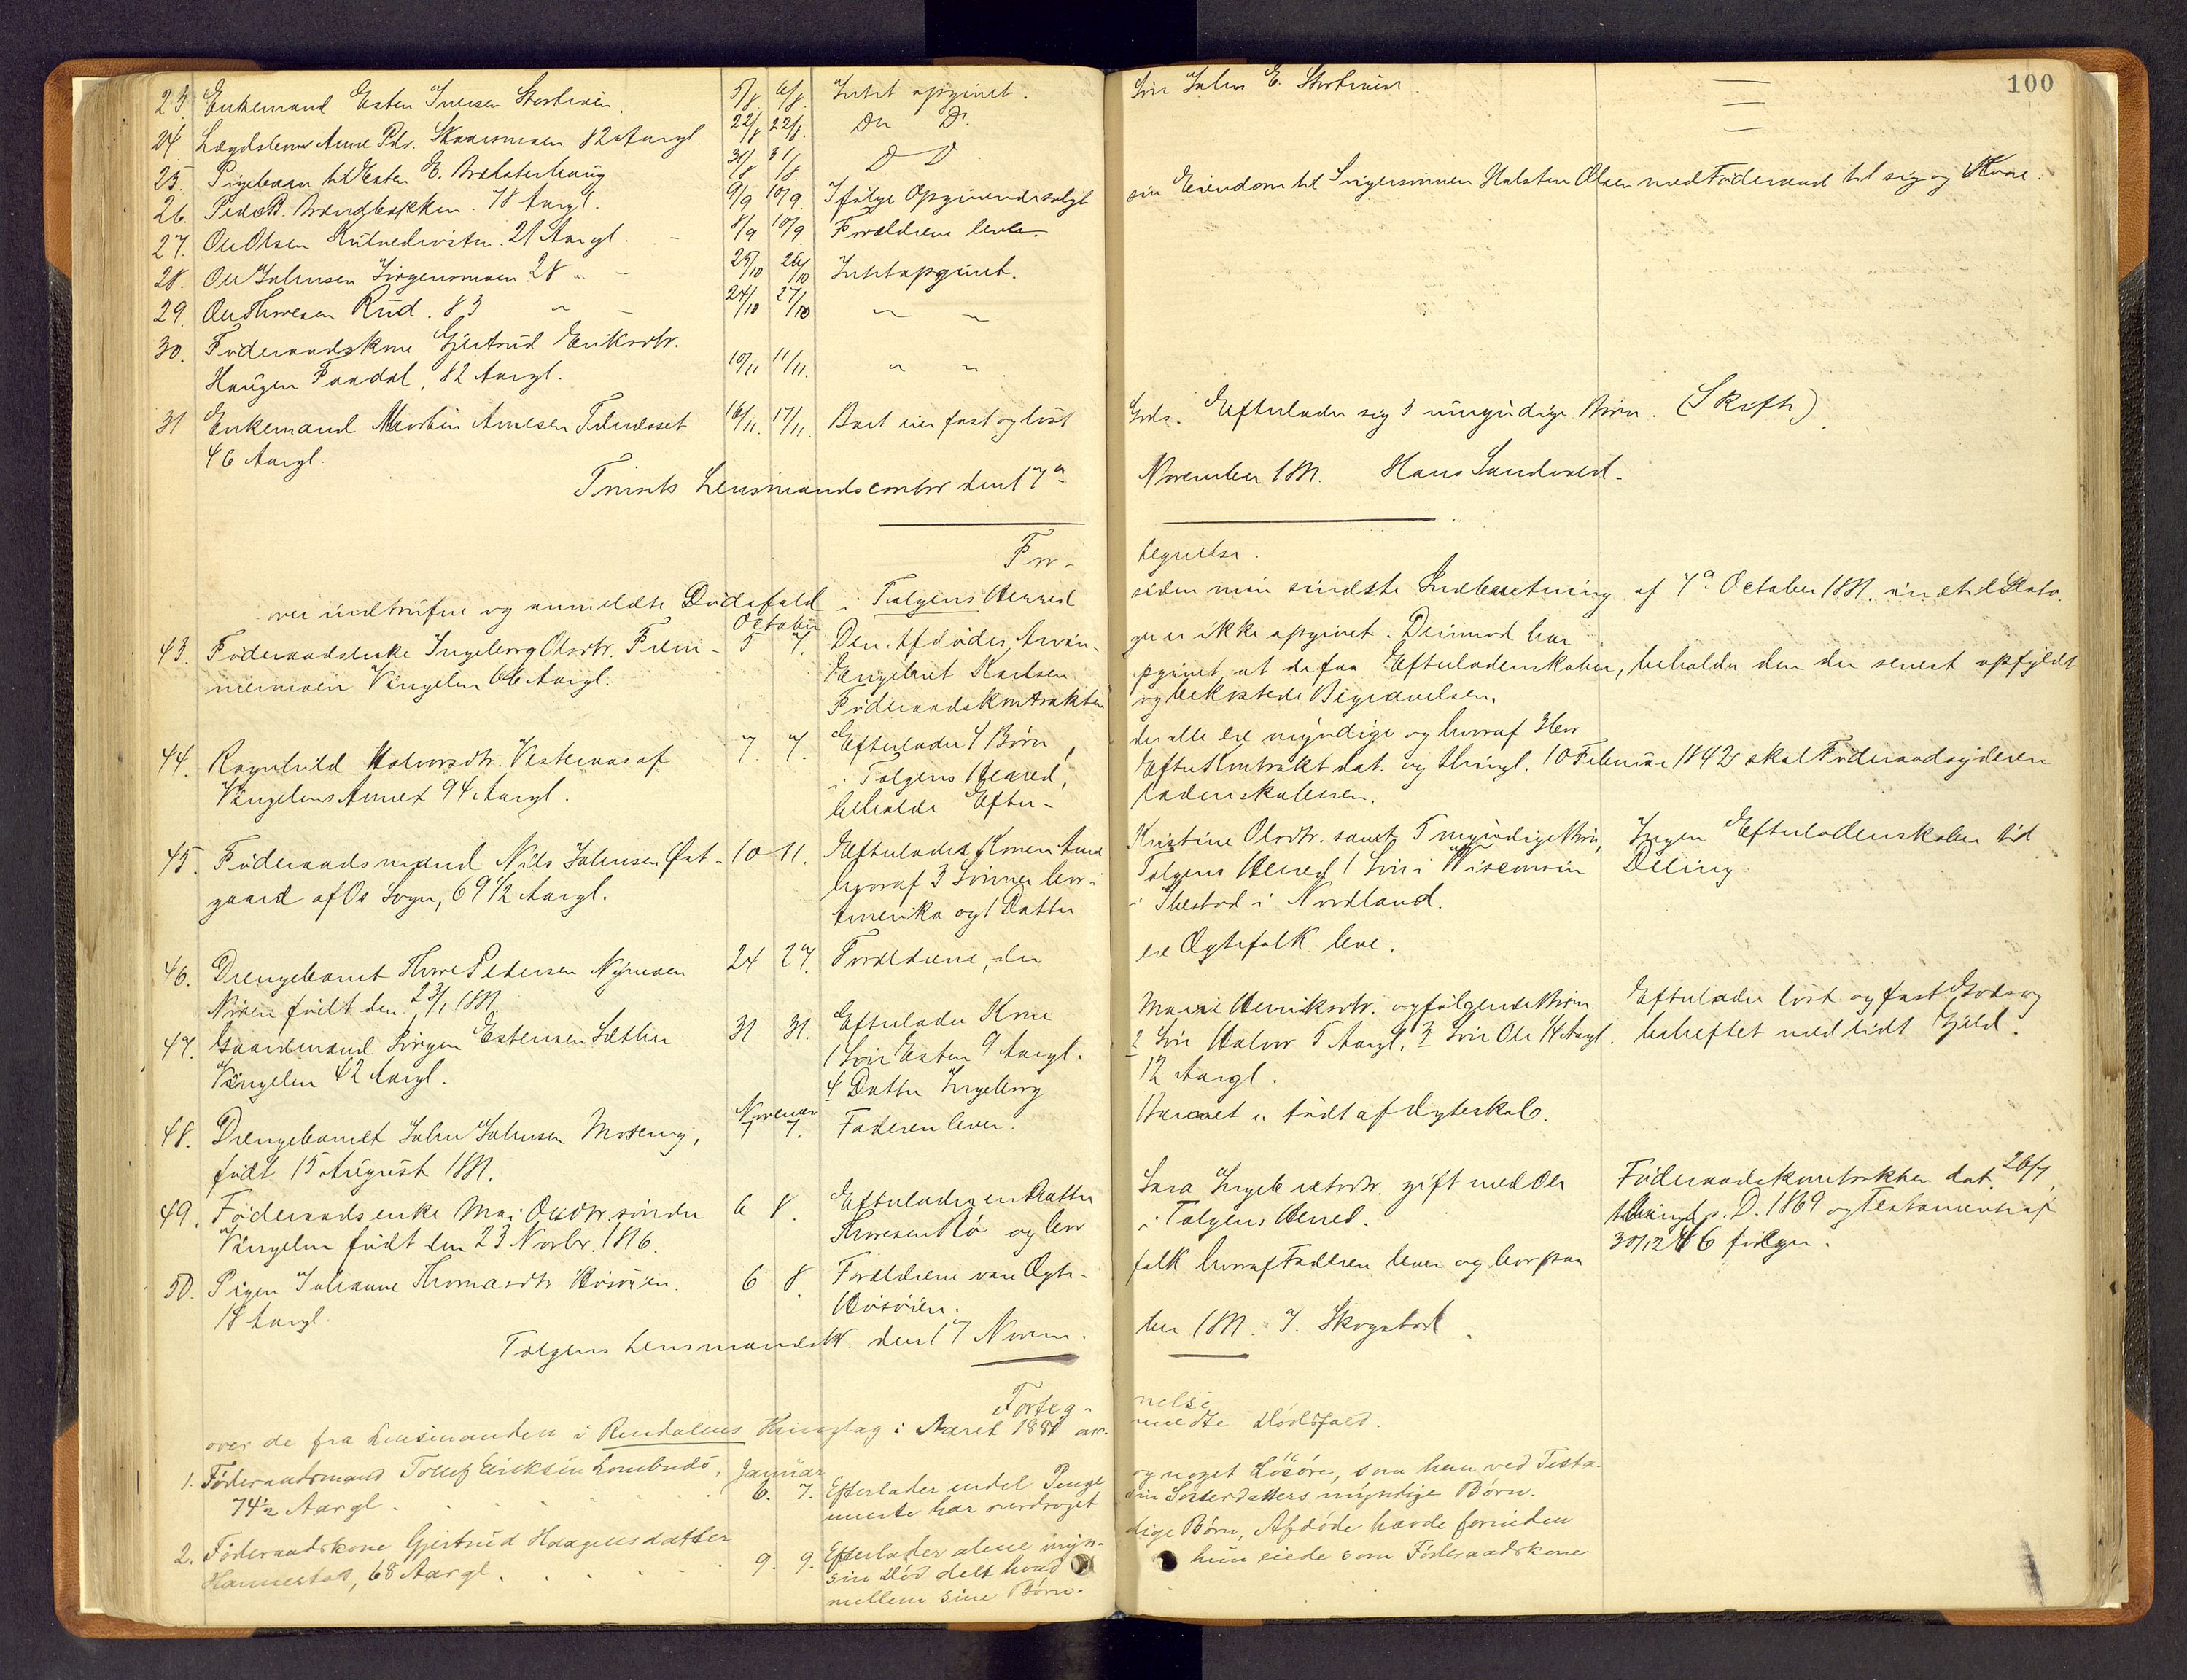 100
23. Enkemand Esten Iversen 5/8. 6/8. Intet opgivet. Søn John E.
24. Lægdslem Anne Pdr. 82 Aargl. 22/8 22/8. Do Do.
25. Pigebarn til Esten E. 31/8 31/8. D D.
26. Peder B. 78 Aargl. 9/9 10/9. Ifølge Opgivende solgt sin Eiendom til Svigersønnen Halsten Olsen med Føderaad til sig og Kone.
27. Ole Olsen 21 Aargl. 8/9 10/9. Forældrene lever.
28. Ole Johnsen Jørgensmoen. 28 " 25/10 26/10 Intet opgivet.
29. Ole Thoresen Rud. 83 " 24/10 27/10 " "
30. Føderaadskone Gjertrud Eriksdtr.
Haugen Faadal, 82 Aargl. 10/11 11/11. " "
31 Enkemand Morten Arnesen 16/11. 17/11. Boet eier fast og løst Gods. Efterlader sig 3 umyndige Børn. (Skifte)
46 Aargl.
Tønsets Lensmandscontor den 17de November 1881. Hans Sandvold.
For-tegnelse.
over indtrufne og anmeldte Dødsfald i Tolgens Herred siden min sindste Indberetning af 7de October 1881.
October
43. Føderaadsenke Ingeborg Olsdtr. Frem- 5 7. Den Afdødes Arvin- ger er ikke opgivet. Derimod har
mermoen Vingelen 66 Aargl. Engebret Karlsen opgivet, at de faa Efterladenskaber, beholder den der senest opfyldt
Føderaadskontrakten og bekostede Begravelsen.
44. Ragnhild Halvorsdtr. Vesteraas af 7. 7. Efterlader 4 Børn, der alle ere myndige og hvoraf 3 bor
Vingelens Annex 94 Aargl. i Tolgens Herred, Efter Kontrakt dat. og thingl. 10 Februar 1842 skal Føderaadsyderen
beholde Efter- ladenskaberne.
45. Føderaadsmand Nils Johnsen Øst- 10 11. Efterlader Konen Anne Kristine Olsdtr. samt 5 myndige Børn, Ingen Efterladenskaber til
gaard af Os Sogn, 69 1/2 Aargl. hvoraf 3 Sønner bor i Tolgens Herred 1 Søn i Wisconsin Deling.
Amerika og 1 Datter i Ibestad i Nordland.
46. Drengebarnet Thore Pedersen Nymoen 24 27. Forældrene, der ere Ægtefolk leve.
født den 23/1 1881
47. Gaardmand Jørgen Estensen Sæther 31 31. Efterlader Kone Marie Henriksdtr. og følgende Børn. Efterlader løst og fast Gods og
Vingelen 42 Aargl. 1 Søn Esten 9 Aargl. 2 Søn Halvor 5 Aargl. 3 Søn Ole 14 Aargl. beheftet med lidt Gjeld.
4 Datter Ingeborg 12 Aargl.
November
48. Drengebarnet John Johnsen Moseng, 7. Faderen lever. Barnet er født af Ægteskab.
født 15 August 1881.
49. Føderaadsenke Mari Olsdtr søndre 6 8. Efterlader en Datter Sara Ingebretsdtr. gift med Ole Føderaadskontrakten dat. 26/7,
Vingelen født den 23 Novbr. 1816. Thoresen Rø og bor i Tolgens Herred. thingl. s. D. 1869 og Testament af
30/12 følger.
50. Pigen Johanne Thomasdtr Høsøien. 6 8. Forældrene vare Ægte- folk hvoraf Faderen lever og bor paa
18 Aargl. Høsøien.
Tolgens Lensmandsk. den 17 Novem- ber 1881. J. Skogstad.
Forteg- nelse
over de fra Lensmanden i Rendalens Thinglag i Aaret 1881 an- meldte Dødsfald.
Januar
1. Føderaadsmand Tollef Eriksen Lombnæs, 6. 7. Efterlader endel Penge og noget Løsøre, som han ved Testa-
74 1/2 Aargl. mente har overdraget sin Søsterdatters myndige Børn.
2. Føderaadskone Gjertrud Haagensdatter 9. 9. Efterlader alene myn- dige Børn, Afdøde havde forinden
Hannestad, 68 Aargl. sin Død delt hvad hun eiede som Føderaadskone
mellem sine Børn.